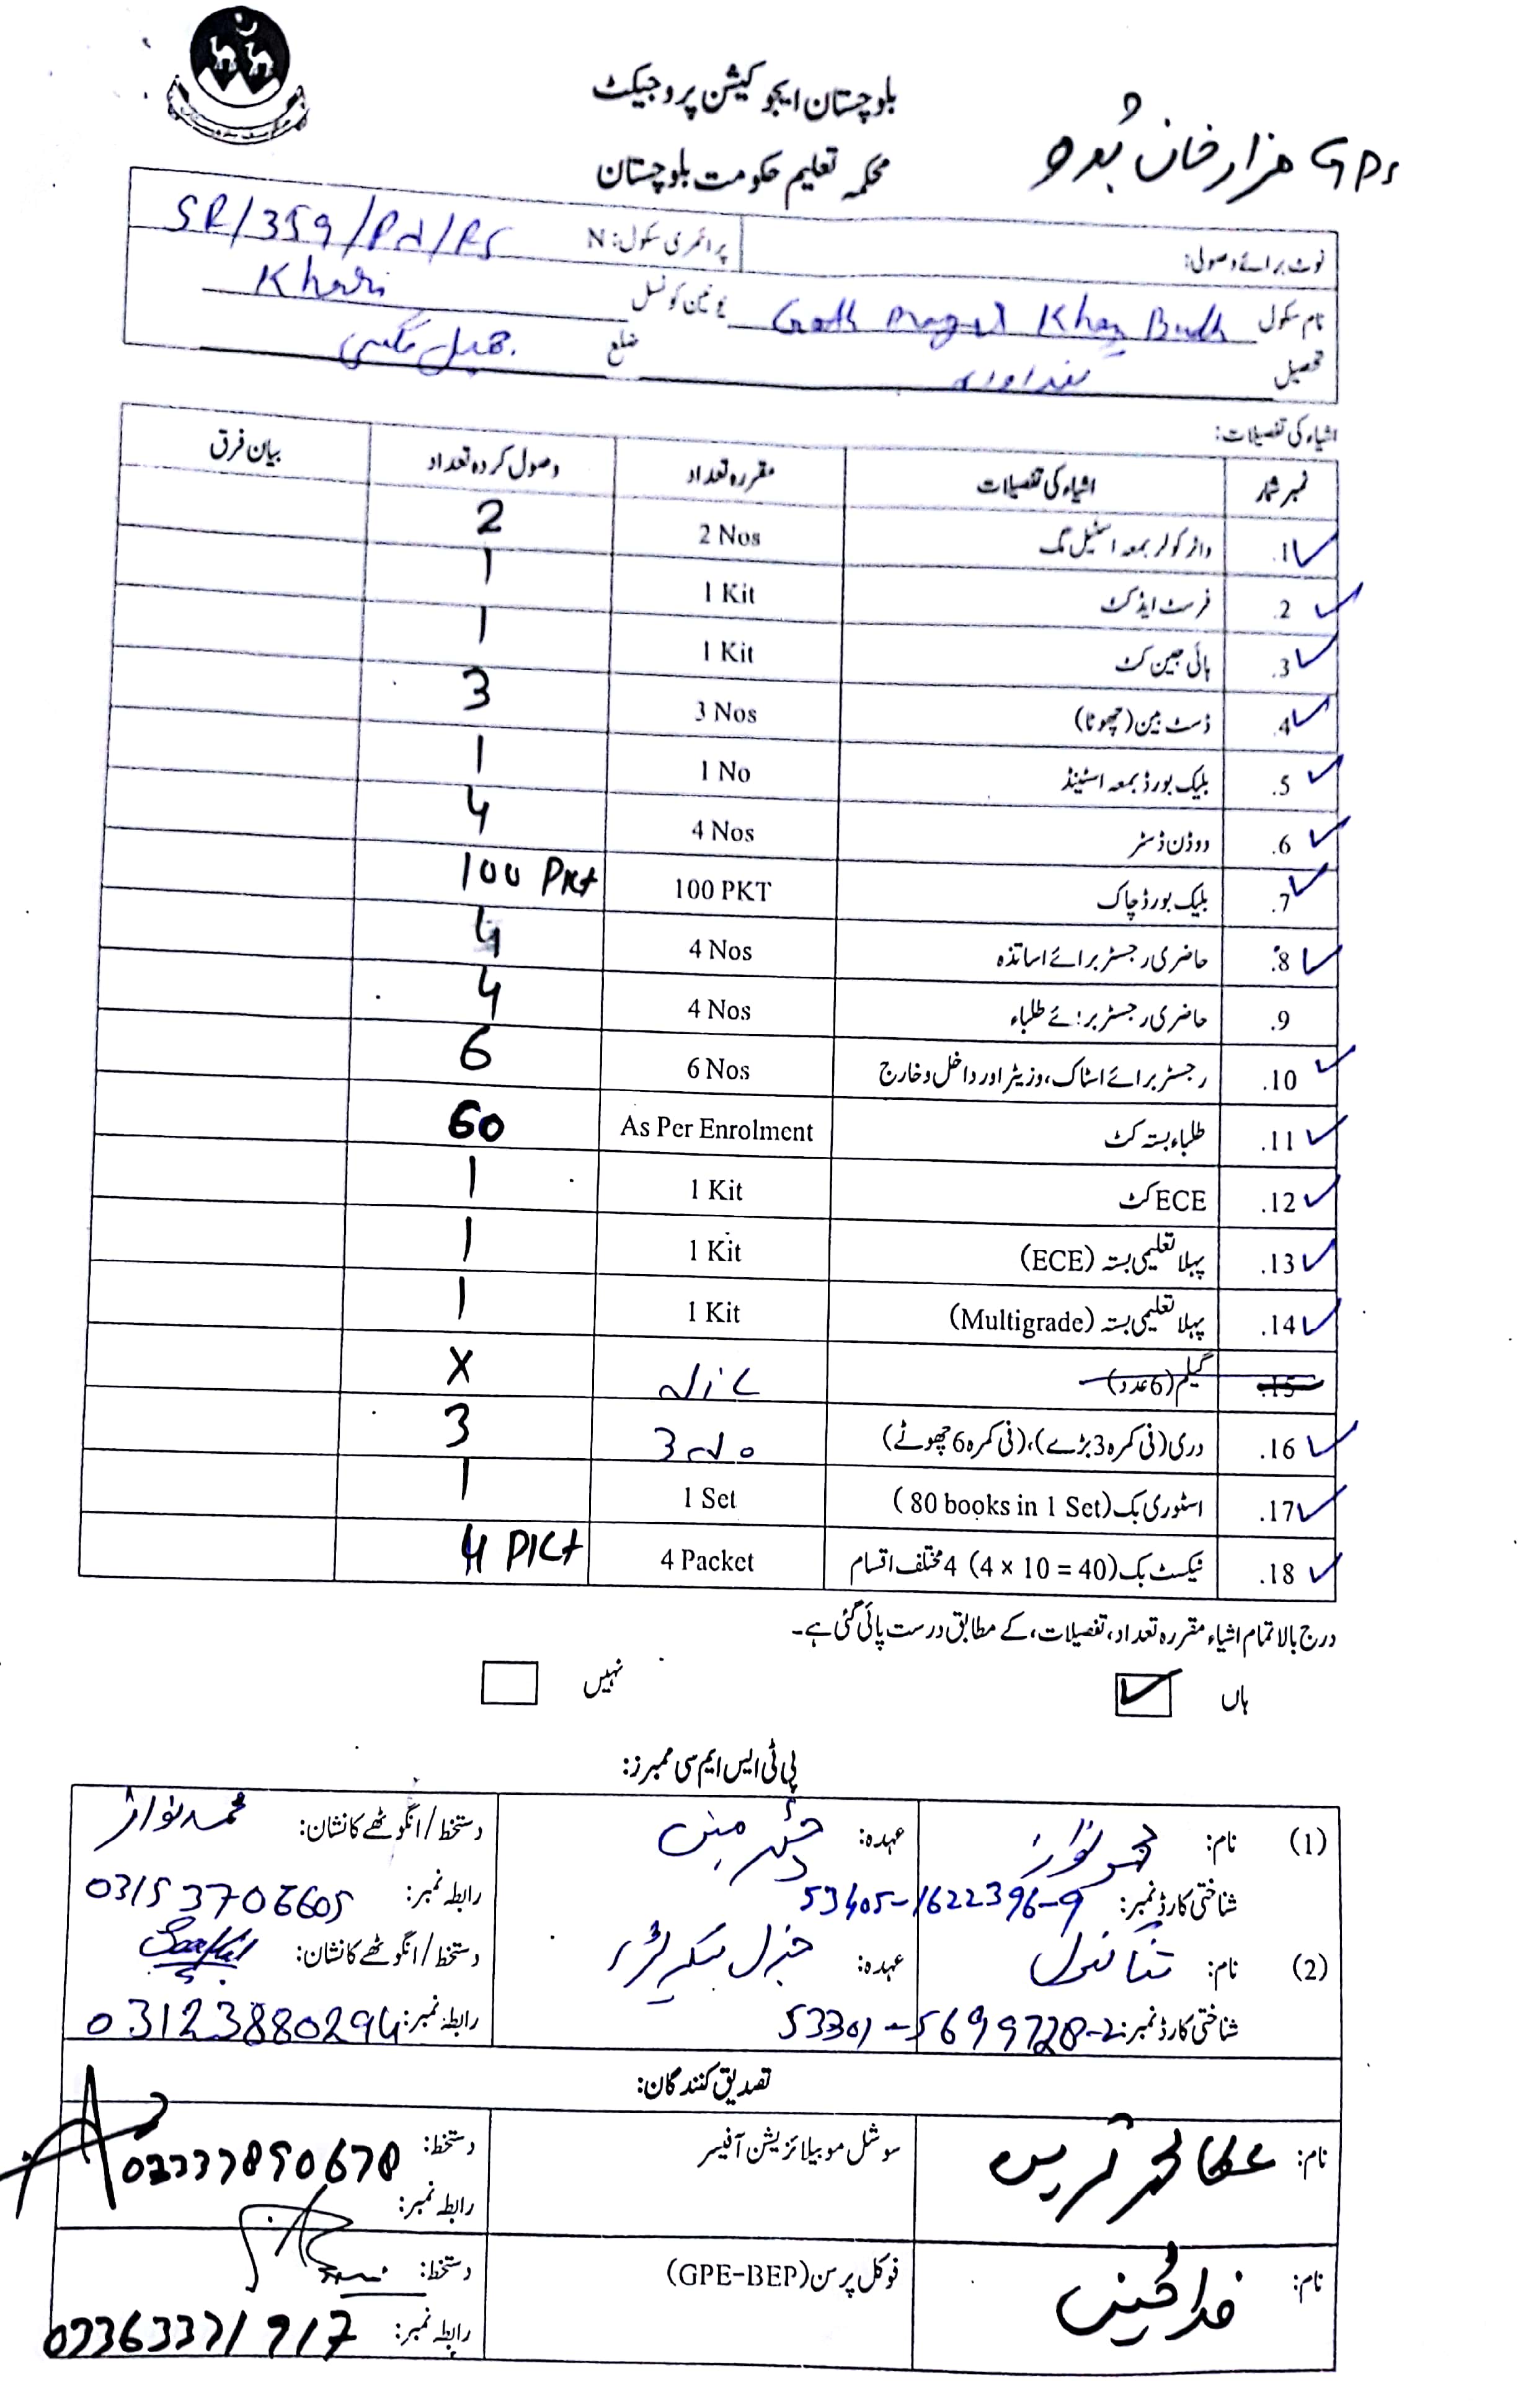 بلوچستان ایجوکیشن پروجیکٹ
محکمہ تعلیم حکومت بلوچستان
GPS ہزار خان بُدو
نوٹ برائے وصولی: پرائمری سکول: N SR/359/Pd/PS
نام سکول Goth Khan Budh یونین کونسل Khari
تحصیل ضلع جھل مگسی
اشیاء کی تفصیلات:
نمبر شمار اشیاء کی تفصیلات مقررہ تعداد وصول کردہ تعداد بیان فرق
1. واٹر کولر بمعہ اسٹیل مگ 2 Nos 2
2. فرسٹ ایڈ کٹ 1 Kit 1
3. ہائی جین کٹ 1 Kit 1
4. ڈسٹ بین (چھوٹا) 3 Nos 3
5. بلیک بورڈ بمعہ اسٹینڈ 1 No 1
6. ووڈن ڈسٹر 4 Nos 4
7. بلیک بورڈ چاک 100 PKT 100 Pkt
8. حاضری رجسٹر برائے اساتذہ 4 Nos 4
9. حاضری رجسٹر برائے طلباء 4 Nos 4
10. رجسٹر برائے اسٹاک، وزیٹر اور داخل و خارج 6 Nos 6
11. طلباء بستہ کٹ As Per Enrolment 60
12. ECE کٹ 1 Kit 1
13. پہلا تعلیمی بستہ (ECE) 1 Kit 1
14. پہلا تعلیمی بستہ (Multigrade) 1 Kit 1
15. گیلم (6 عدد) X
16. دری (فی کمرہ 3 بڑے)، (فی کمرہ 6 چھوٹے) 3 No 3
17. اسٹوری بک (80 books in 1 Set) 1 Set 1
18. ٹیکسٹ بک (4 x 10 = 40) 4 مختلف اقسام 4 Packet 4 PKt
درج بالا تمام اشیاء مقررہ تعداد، تفصیلات، کے مطابق درست پائی گئی ہے۔
ہاں ✓ نہیں
پی ٹی ایس ایم سی ممبرز:
(1) نام: محمد نواز عہدہ: چئرمین دستخط/انگوٹھے کا نشان: محمد نواز
شناختی کارڈ نمبر: 53405-1622396-9 رابطہ نمبر: 03153706605
(2) نام: عہدہ: جنرل سکریٹری دستخط/انگوٹھے کا نشان:
شناختی کارڈ نمبر: 53301-5699728-2 رابطہ نمبر: 03123880294
تصدیق کنندگان:
نام: عطا محمد سوشل موبیلائزیشن آفیسر دستخط:
رابطہ نمبر: 03337890678
نام: فدا حُسین فوکل پرسن (GPE-BEP) دستخط:
رابطہ نمبر: 03363371917